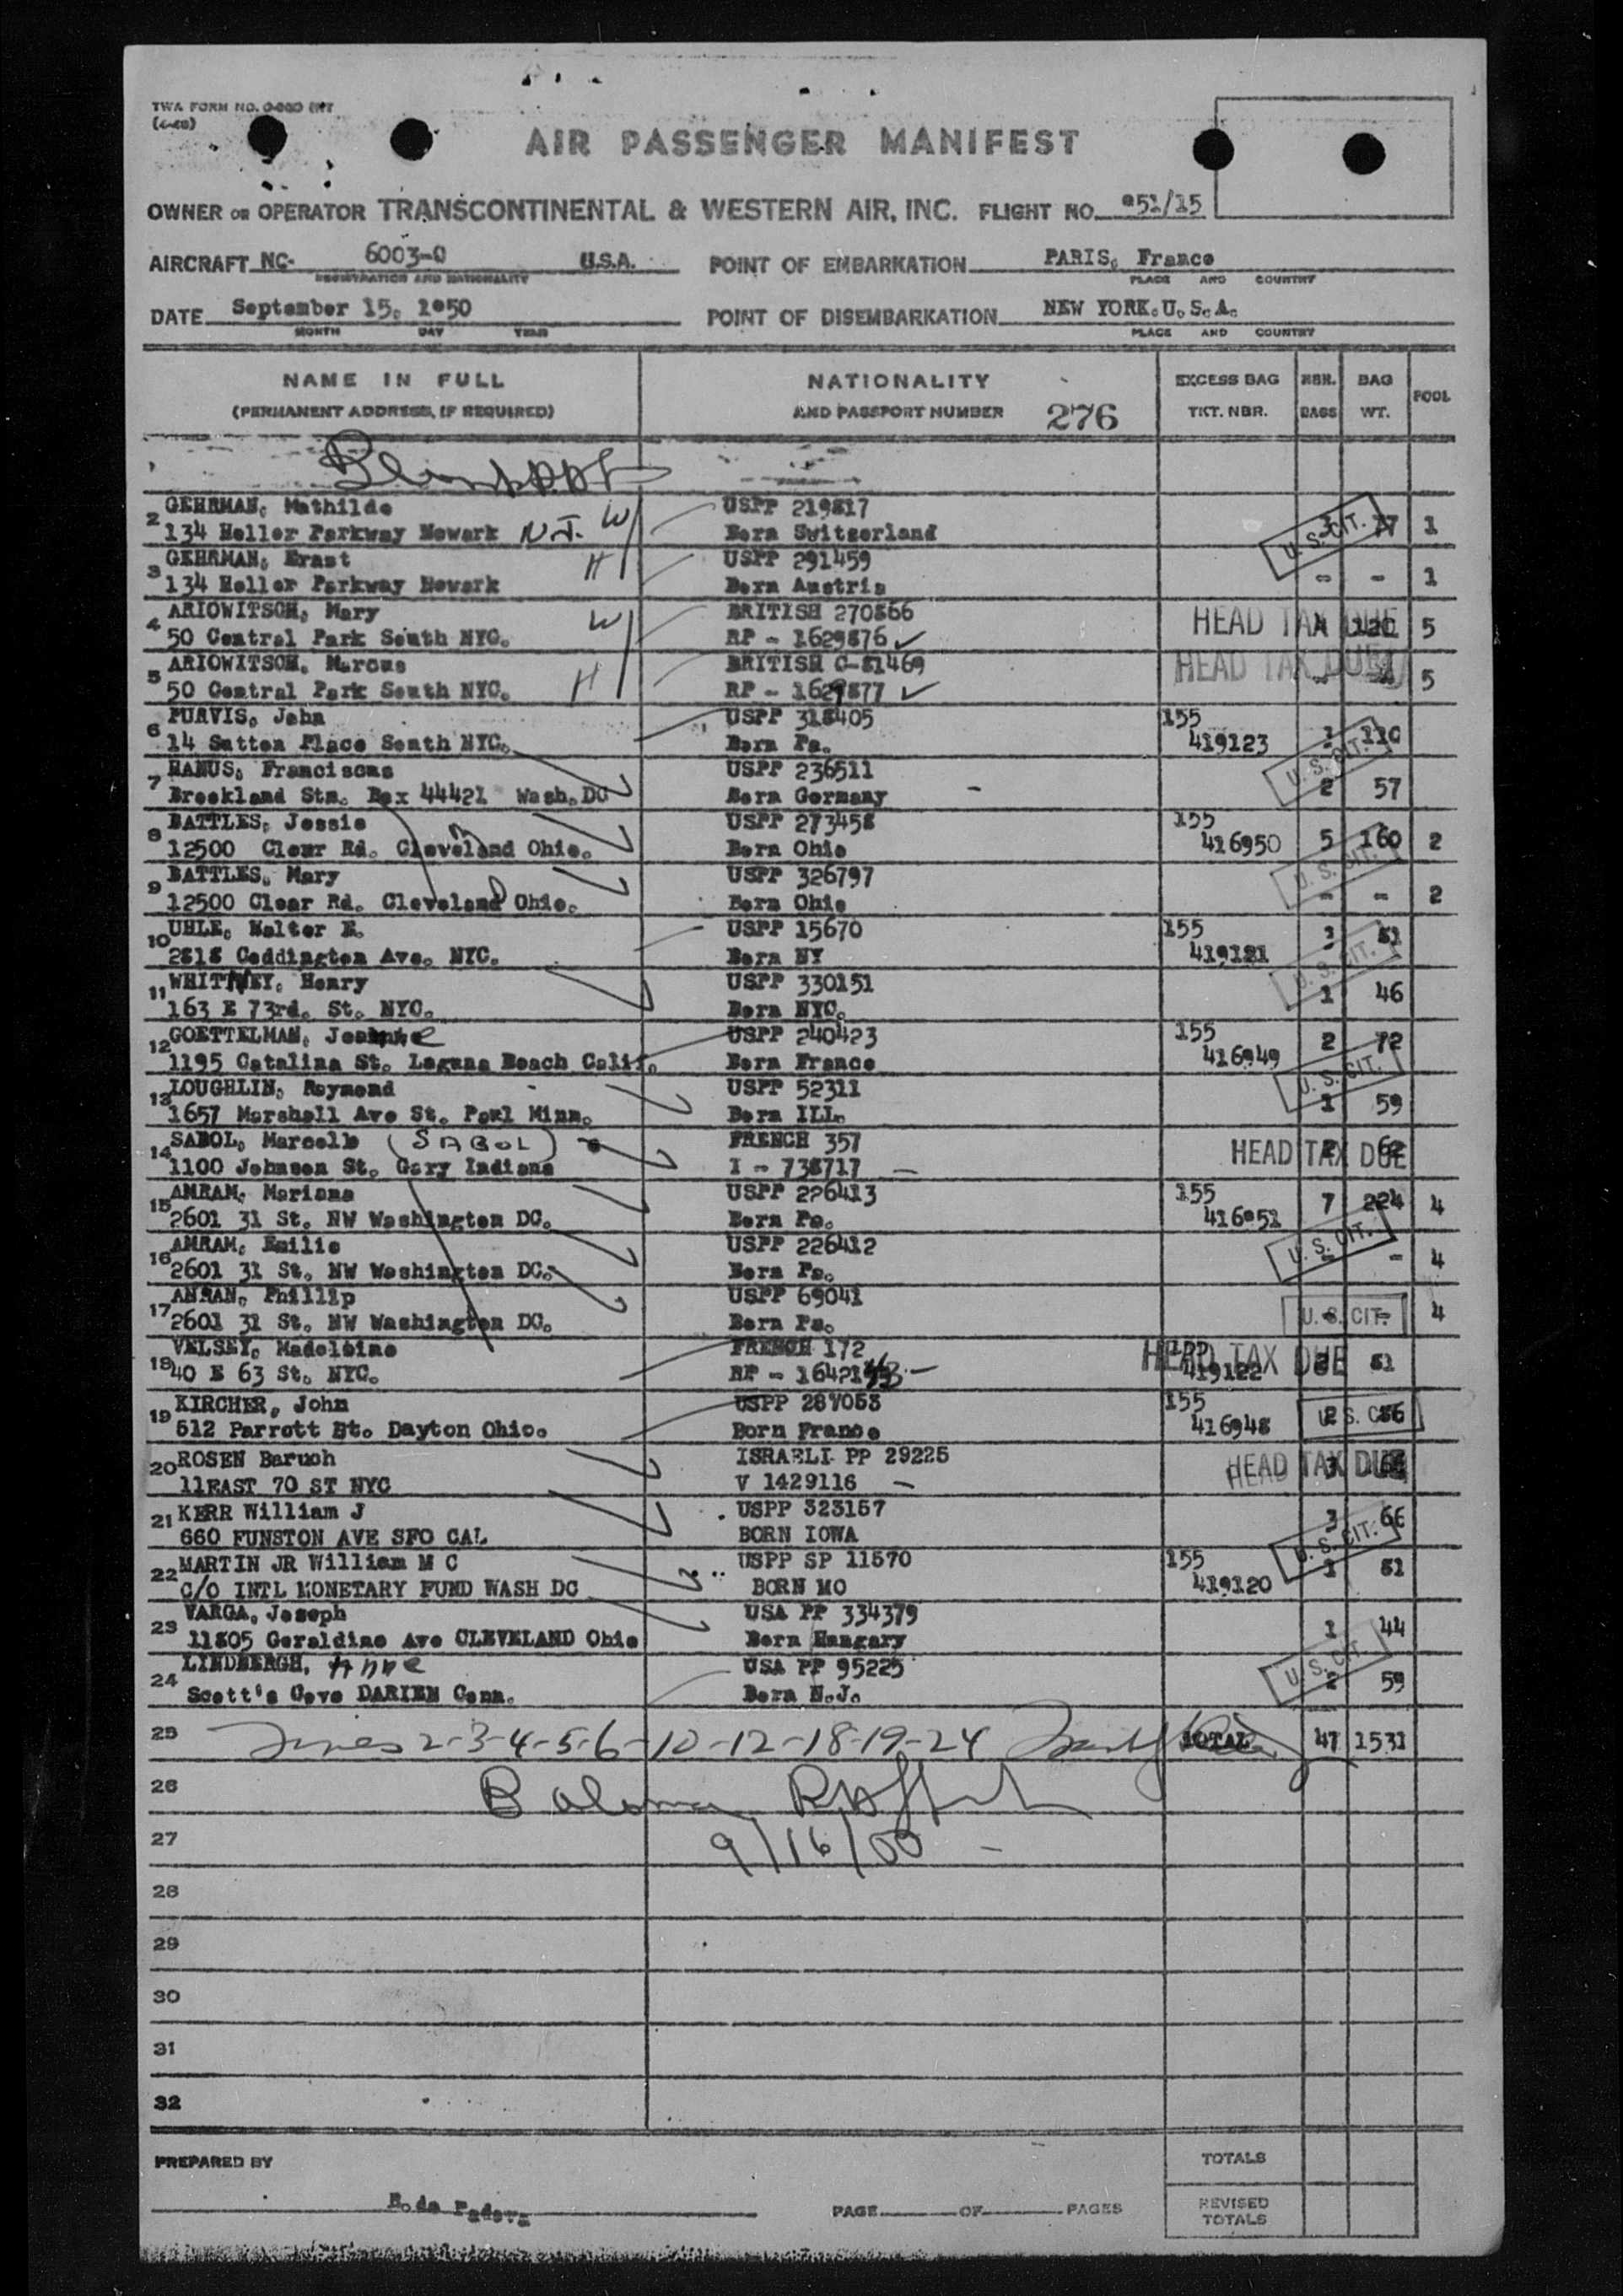 TWA FORM NO.
AIR PASSENGER MANIFEST
OWNER OR OPERATOR TRANSCONTINENTAL & WESTERN AIR, INC. FLIGHT NO. 951/15
AIRCRAFT NC- 6003-C U.S.A. POINT OF EMBARKATION PARIS, France
REGISTRATION AND NATIONALITY PLACE AND COUNTRY
DATE September 15, 1950 POINT OF DISEMBARKATION NEW YORK.U.S.A.
MONTH DAY YEAR PLACE AND COUNTRY
NAME IN FULL NATIONALITY EXCESS BAG NBR. BAG POOL
(PERMANENT ADDRESS, IF REQUIRED) AND PASSPORT NUMBER 276 TKT. NBR. BAGS WT.
2 GEHRMAN, Mathilde W USPP 219817
134 Heller Parkway Newark N.J. Born Switzerland U.S. CIT. 77 1
3 GEHRMAN, Ernst H USPP 291459
134 Heller Parkway Newark Born Austria - - 1
4 ARIOWITSCH, Mary W BRITISH 270866 HEAD TAX DUE
50 Central Park South NYC. RP - 1629876 5
5 ARIOWITSCH, Marcus H BRITISH C-81469 HEAD TAX DUE
50 Central Park South NYC. RP - 1629877 5
6 PURVIS, John USPP 318405 155
14 Sutton Place South NYC. Born Pa. 419123 1 110
U.S. CIT.
7 HANUS, Franciscus USPP 236511
Brookland Stn. Box 44421 Wash.DC Born Germany 2 57
8 BATTLES, Jessie USPP 273458 155
12500 Clear Rd. Cleveland Ohio. Born Ohio 416950 5 160 2
U.S. CIT.
9 BATTLES, Mary USPP 326797
12500 Clear Rd. Cleveland Ohio. Born Ohio - - 2
10 UHLE, Walter E. USPP 15670 155 3 81
2818 Coddington Ave. NYC. Born NY 419121
U.S. CIT.
11 WHITNEY, Henry USPP 330151
163 E 73rd. St. NYC. Born NYC. 1 46
12 GOETTELMAN, Jeanne USPP 240423 155 2 72
1195 Catalina St. Laguna Beach Calif. Born France 416949
U.S. CIT.
13 LOUGHLIN, Raymond USPP 52311
1657 Marshall Ave St. Paul Minn. Born ILL. 1 59
14 SABOL, Marcelle (SABOL) FRENCH 357 HEAD TAX DUE 2 62
1100 Johnson St. Gary Indiana I - 738717
15 AMRAM, Mariana USPP 226413 155 7 224 4
2601 31 St. NW Washington DC. Born Pa. 416951
U.S. CIT.
16 AMRAM, Emilie USPP 226412
2601 31 St. NW Washington DC. Born Pa. - - 4
17 AMRAM, Phillip USPP 69041
2601 31 St. NW Washington DC. Born Pa. U.S. CIT. 4
18 VELSEY, Madeleine FRENCH 172 HEAD TAX DUE
40 E 63 St. NYC. RP - 419122 81
19 KIRCHER, John USPP 287053 155
512 Parrott St. Dayton Ohio. Born France 416948 2 U.S. CIT.
20 ROSEN Baruch ISRAELI PP 29225 HEAD TAX DUE 3
11EAST 70 ST NYC V 1429116
21 KERR William J USPP 323157 3 66
660 FUNSTON AVE SFO CAL BORN IOWA
U.S. CIT.
22 MARTIN JR William M C USPP SP 11570 155 1 51
C/O INTL MONETARY FUND WASH DC BORN MO 419120
23 VARGA, Joseph USA PP 334379
11805 Geraldine Ave CLEVELAND Ohio Born Hungary 1 44
24 LINDBERGH, Anne USA PP 95225 U.S. CIT.
Scott's Cove DARIEN Conn. Born N.J. 2 59
25 Lines 2-3-4-5-6-10-12-18-19-24 TOTAL 47 1531
26
27 9/16/50
28
29
30
31
32
PREPARED BY TOTALS
PAGE OF PAGES REVISED
TOTALS